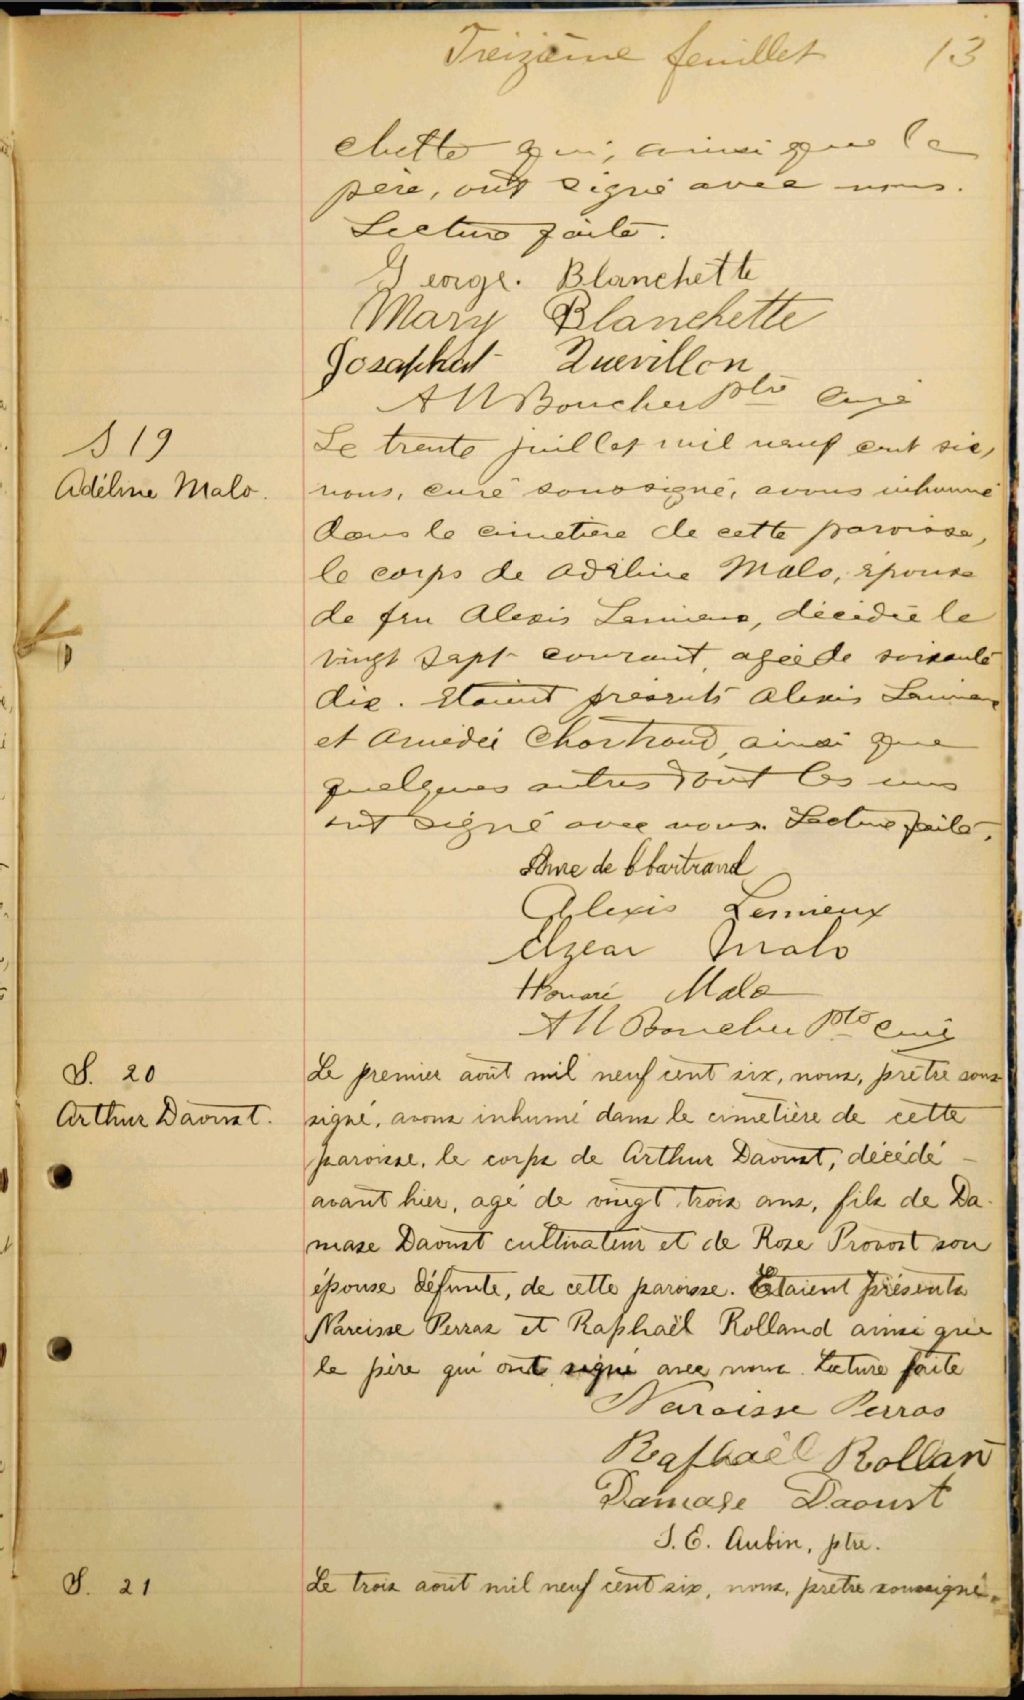 Treizième feuillet 13
chette qui, ainsi que le
père, ont signé avec nous.
Lecture faite.
George. Blanchette
Mary Blanchette
Josaphat Quevillon
A Boucher Ptre Curé
S 19
Adéline Malo.
Le trente juillet mil neuf cent six,
nous, curé soussigné, avons inhumé
dans le cimetière de cette paroisse,
le corps de Adéline Malo, épouse
de feu Alexis Lemieux, décédée le
vingt sept courant, agée de soixante
dix. Etaient présents Alexis Lemieux
et Amédée Chartrand, ainsi que
quelques autres dont les uns
ont signé avec nous. Lecture faite.
Ame de Chartrand
Alexis Lemieux
Elzear Malo
Honoré Malo
A Boucher Ptre Curé
S. 20
Arthur Daoust.
Le premier août mil neuf cent six, nous, prêtre sous-
signé, avons inhumé dans le cimetière de cette
paroisse, le corps de Arthur Daoust, décédé
avant hier, agé de vingt trois ans, fils de Da-
mase Daoust cultivateur et de Rose Provost son
épouse défunte, de cette paroisse. Etaient présents
Narcisse Perras et Raphaël Rolland ainsi que
le père qui ont signé avec nous. Lecture faite
Narcisse Perras
Raphaël Rollan
Damase Daoust
J. E. Aubin, ptre.
S. 21
Le trois août mil neuf cent six, nous, prêtre soussigné,